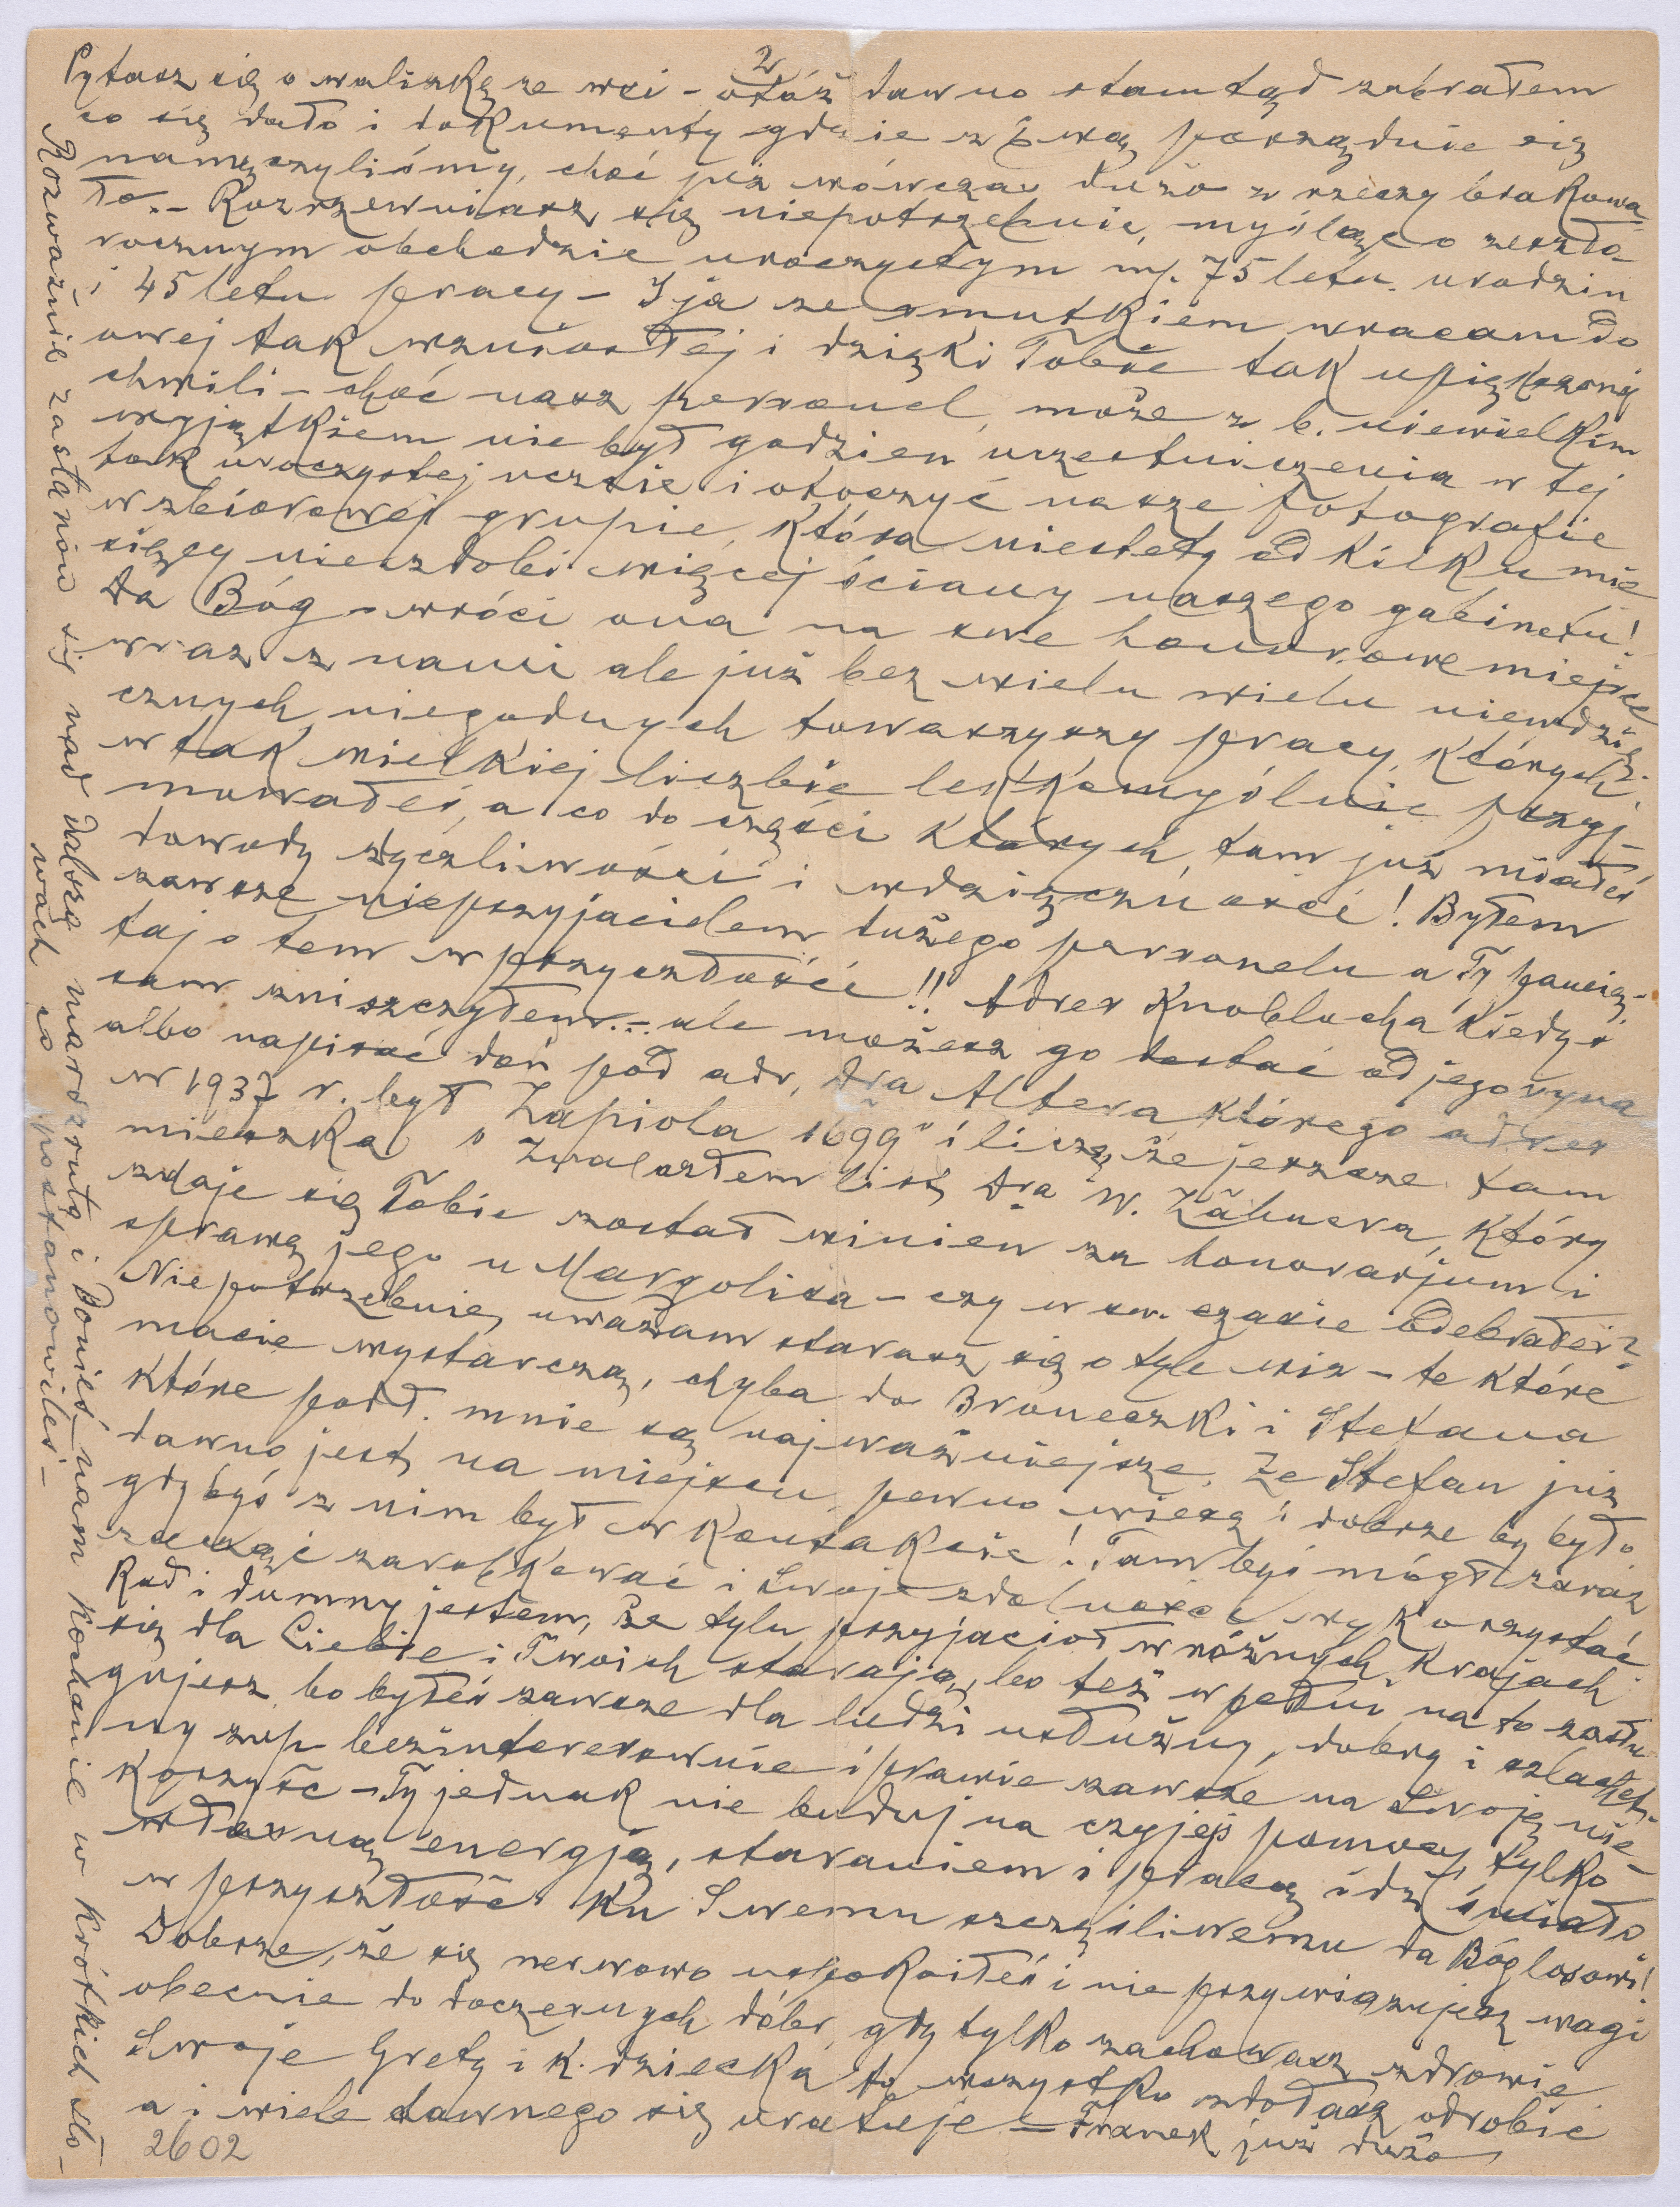 2
Pytasz się o walizkę ze wsi - otóż dawno stamtąd zabrałem
co się dało i dokumenty gdzie z Ewą porządnie się
namęczyliśmy, choć już wówczas dużo z rzeczy brakowa-
ło.- Rozrzewniasz się niepotrzebnie, myśląc o zeszło-
rocznym obchodzie uroczystym mj. 75 letn. urodzin
i 45 letn. pracy - I ja ze smutkiem wracam do
owej tak wzniosłej i dzięki Tobie tak upiększonej
chwili - choć nasz personel może z b. niewielkim
wyjątkiem nie był godzien uczestniczenia w tej
tak uroczystej uczcie i otoczyć nasze fotografie
w zbiorowej grupie, która niestety od kilku mie
sięcy nie zdobi więcej ściany naszego gabinetu!
Da Bóg - wróci ona na swe honorowe miejsce
wraz z nami ale już bez wielu wielu niewdzię-
cznych niegodnych towarzyszy pracy, których
w tak wielkiej liczbie lekkomyślnie przyj-
mowałeś, a co do części których tam już miałeś
dowody życzliwości i wdzięczności! Byłem
zawsze nieprzyjacielem dużego personelu a Ty pamię-
taj o tem w przyszłości!! Adres Knoblocha kiedyś
sam zniszczyłem.- ale możesz go dostać od jego syna
albo napisać doń pod adr, dra Altera którego adres
w 1937 r. był Zapiola 1699" i liczę że jeszcze tam
mieszka. Znalazłem list dra W. Zähnera, który
zdaje się Tobie został winien za honorarjum i
sprawę jego u Margolisa - czy w sw. czasie odebrałeś?
Niepotrzebnie, uważam starasz się o tyle wiz - te które
macie wystarczą, chyba do Broneczki i Stefana
które podł. mnie są najważniejsze. Że Stefan już
dawno jest na miejscu pewno wiesz i dobrze by było
gdybyś z nim był w kontakcie! Tam byś mógł zaraz
zacząć zarobkować i swoje zdolności wykorzystać
Rad i dumny jestem, że tylu przyjaciół w różnych krajach
się dla Ciebie i Twoich starają, bo też w pełni na to zasłu-
gujesz, bo byłeś zawsze dla ludzi usłużny, dobry i szlachet-
ny zup. bezinteresownie i prawie zawsze na swoją nie-
korzyść - Ty jednak nie buduj na czyjejś pomocy, tylko
własną energją, staraniem i pracą idź śmiało
w przyszłość ku Swemu szczęśliwemu da Bóg losowi!
Dobrze, że się nerwowo uspokoiłeś i nie przywiązujesz wagi
obecnie do doczesnych dóbr, gdy tylko zachowasz zdrowie
Swoje Grety i k. dziecka to wszystko zdołasz odrobić
a i wiele dawnego się uratuje - Franek już dużo
2602
Rozważnie zastanów się nad dalszą marszrutą i Donieś nam Kochanie w krótkich sło-
wach co postanowiłeś -